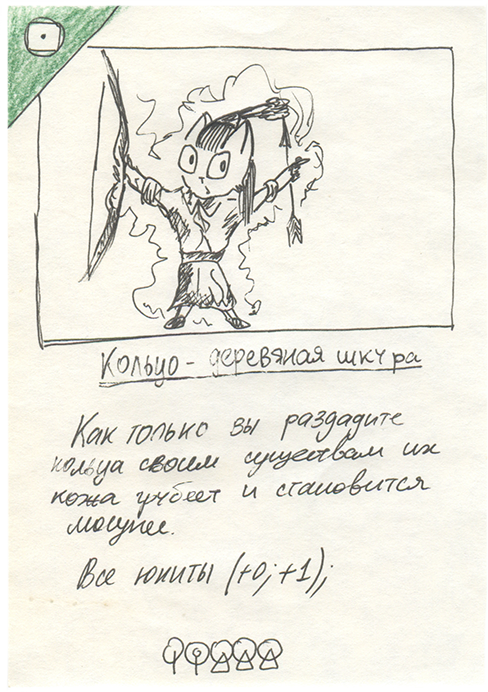 Кольцо - деревяная шкура
Как только вы раздадите
кольца своим существам их
кожа грубеет и становится
Все юниты (+0; +1);